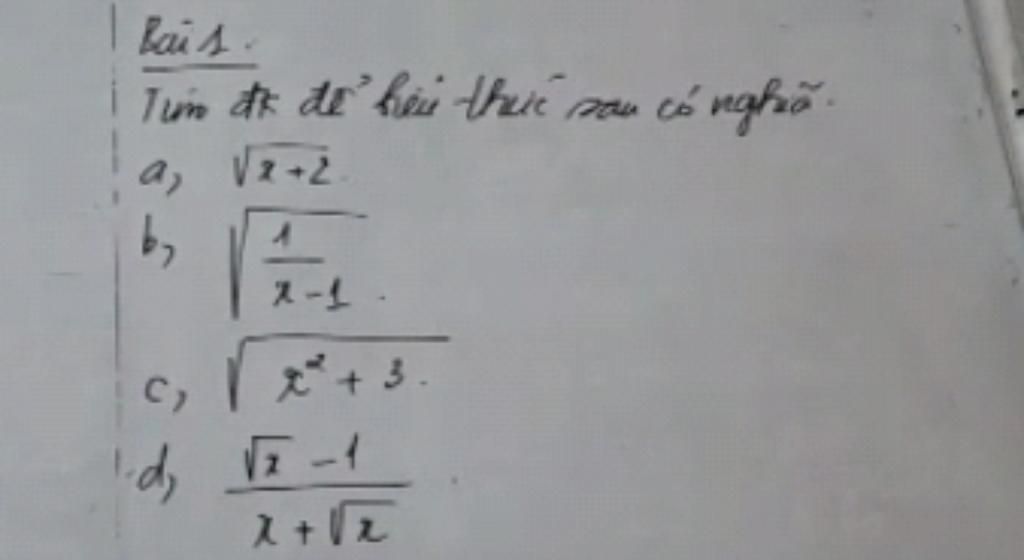 Bài 1.
Tìm đk để biểu thức sau có nghĩa.
a, √(x+2).
b, √(1/(x-1)).
c, √(x² + 3).
d, (√x - 1)/(x + √x)